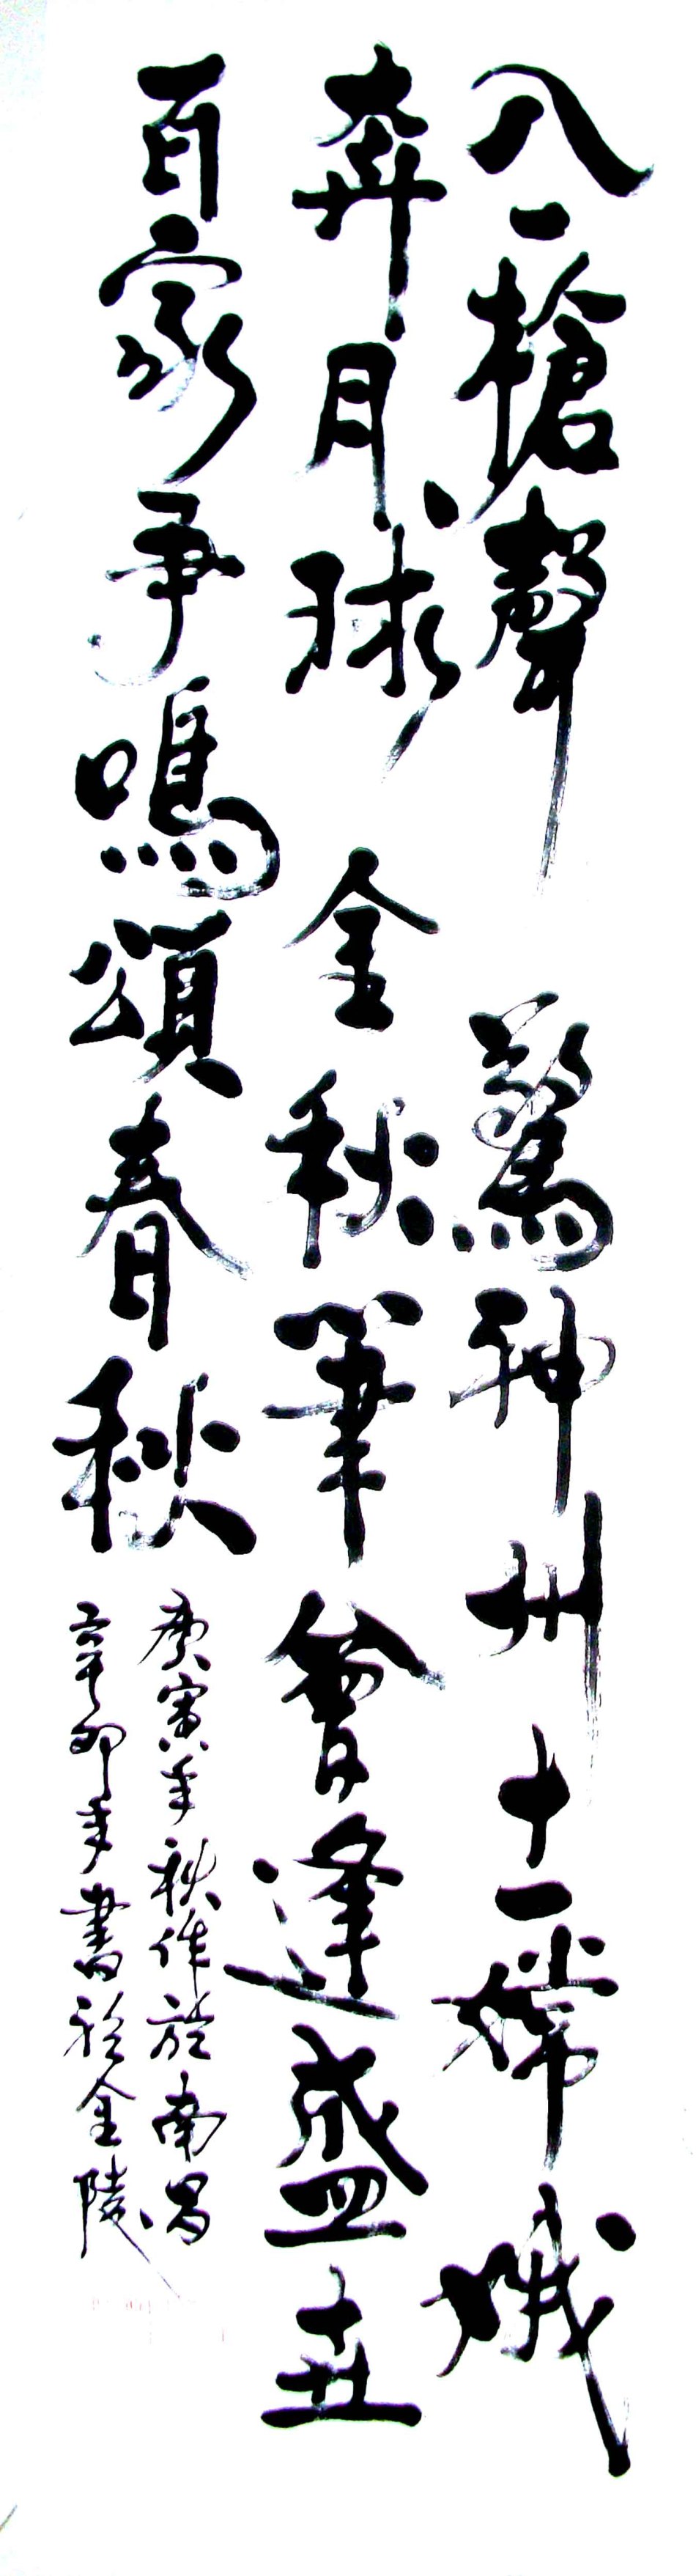 八一槍聲驚神州十一嫦娥
奔月球金秋筆會逢盛世
百家爭鳴頌春秋
庚寅年秋作於南昌
辛卯年書於金陵